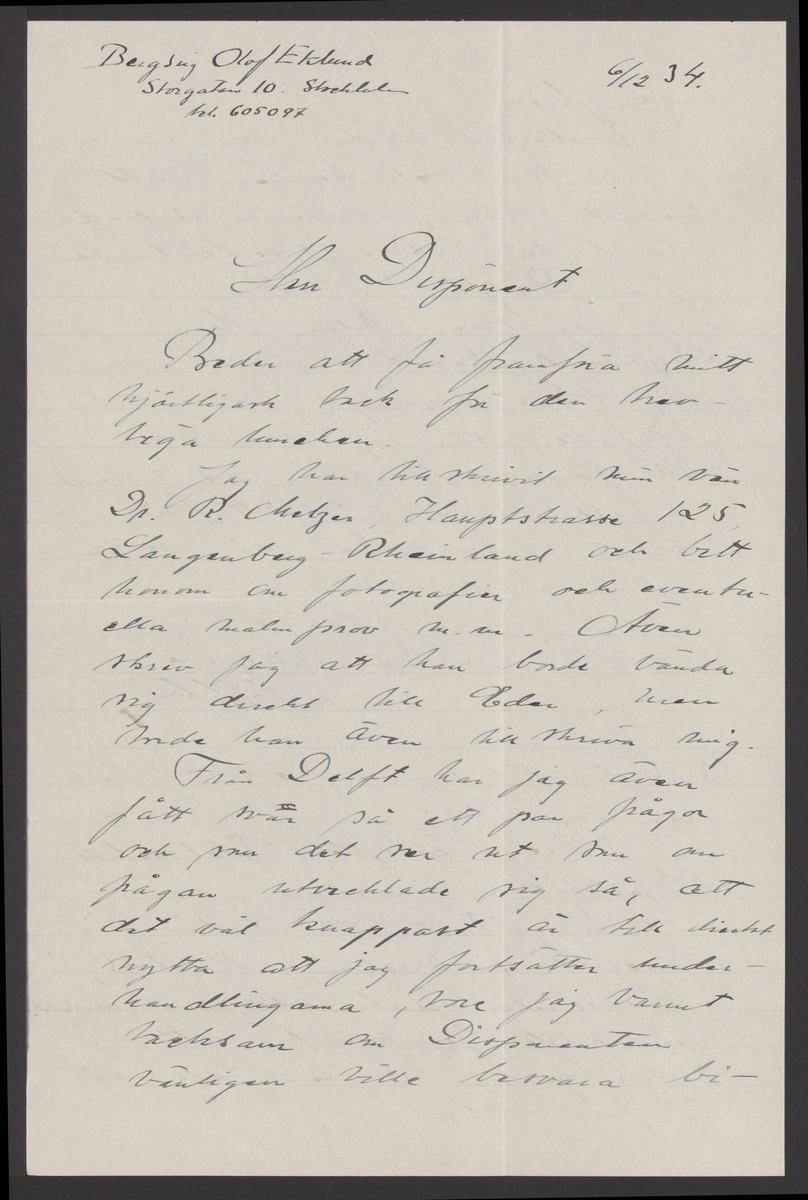 Bergsing Olof Eklund
Storgatan 10. Stockholm
tel. 605097
6/12 34.
Herr Disponent
Beder att få framföra mitt
hjärtligaste tack för den trev-
liga lunchen.
Jag har tillskrivit min vän
Dr. R. Metzer, Hauptstrasse 125,
Langenberg-Rheinland och bett
honom om fotografier och eventu-
ella malmprov m.m. Även
skrev jag att han borde vända
sig direkt till Eder, men
borde han även tillskriva mig.
Från Delft har jag även
fått svar på ett par frågor
och som det ser ut som om
frågan utvecklade sig så, att
det väl knappast är till direkt
nytta att jag fortsätter under-
handlingarna, vore jag varmt
tacksam om Disponenten
vänligen ville besvara bi-